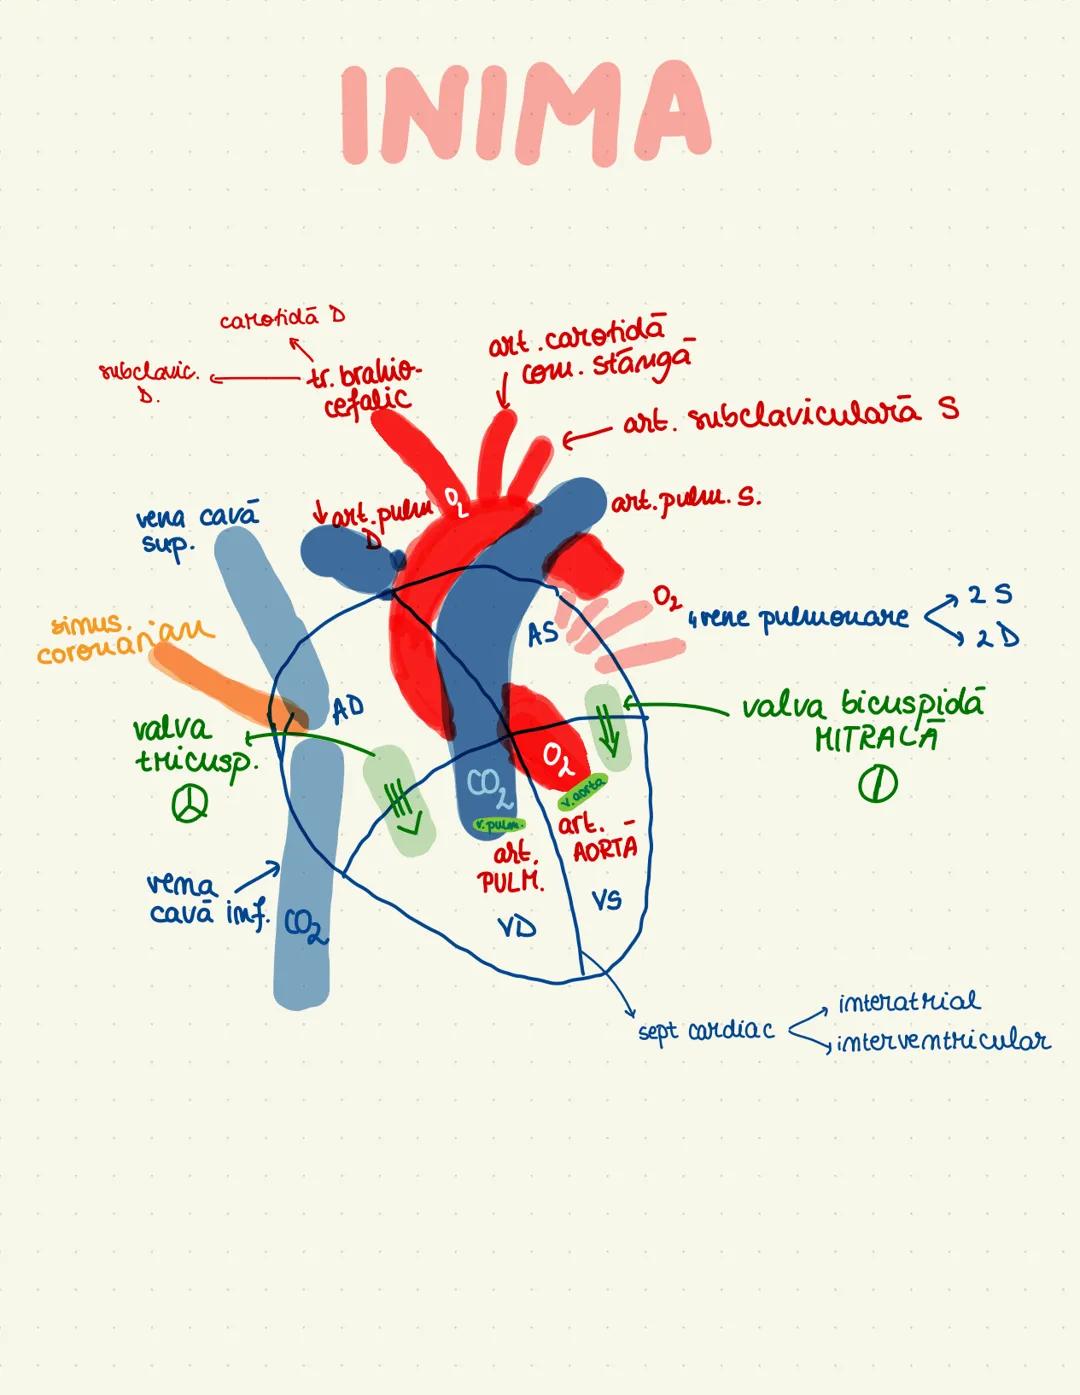 INIMA
carotidă D
subclavic.
D.
tr. brahio-
cefalic
art. carotidă
com. stângă
art. subclaviculară S
vena cavă
sup.
art. pulm
D
O2
art. pulm. S.
sinus.
coronarian
O2
4 vene pulmonare
2 S
2 D
AS
AD
valva
tricusp.
valva bicuspidă
MITRALĂ
O2
CO2
v. aorta
v. pulm.
art.
AORTĂ
art.
PULM.
vena
cavă inf.
CO2
VS
VD
sept cardiac
interatrial
interventricular